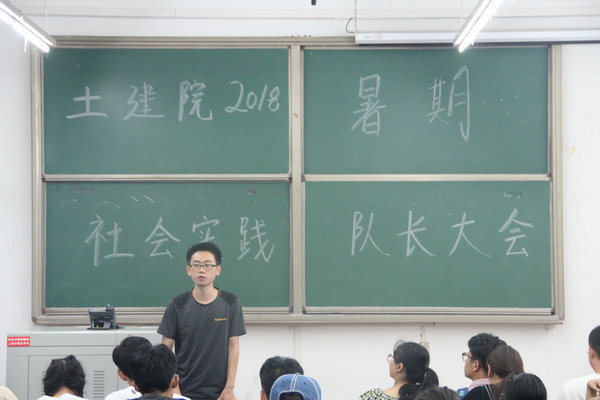 土建院2018 暑期
社会实践 队长大会